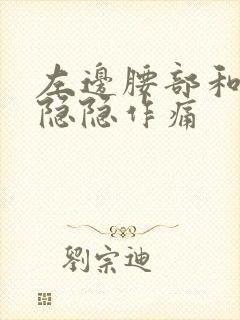 左邊腰部和
隐隐作痛
劉宗迪